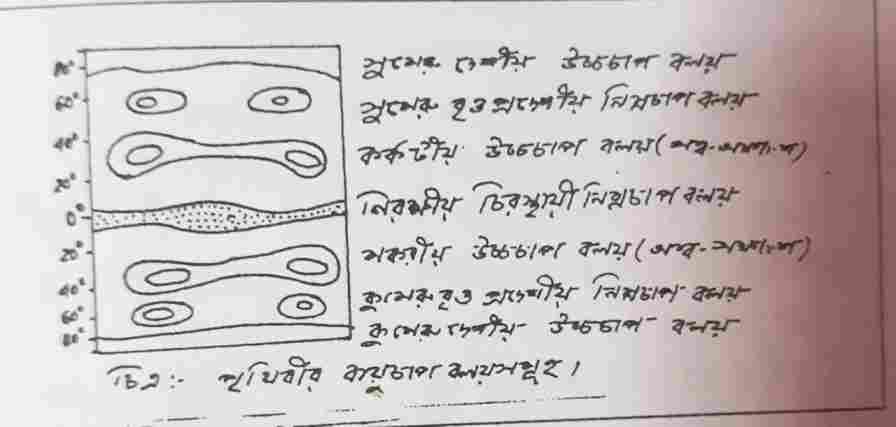 80° সুমেরু দেশীয় উচ্চচাপ বলয়
60° সুমেরু বৃত্ত প্রদেশীয় নিম্নচাপ বলয়
40° কর্কটীয় উচ্চচাপ বলয় (অশ্ব-অক্ষাংশ)
20°
0° নিরক্ষীয় চিরস্থায়ী নিম্নচাপ বলয়
20° মকরীয় উচ্চচাপ বলয় (অশ্ব-অক্ষাংশ)
40° কুমেরু বৃত্ত প্রদেশীয় নিম্নচাপ বলয়
60° কুমেরু দেশীয় উচ্চচাপ বলয়
80°
চিত্র:- পৃথিবীর বায়ুচাপ বলয়সমূহ।